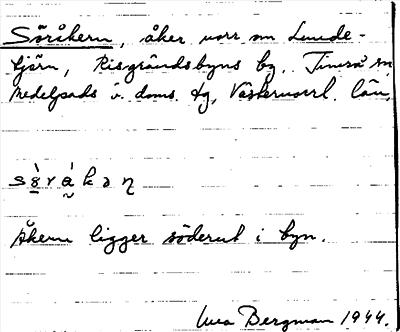 Söråkern, åker norr om Lunde-
tjärn, Risgrändsbyns by, Timrå sn
Medelpads v. doms. tg, Västernorrl. län,
åkern ligger söderut i byn.
Bergman 1944.